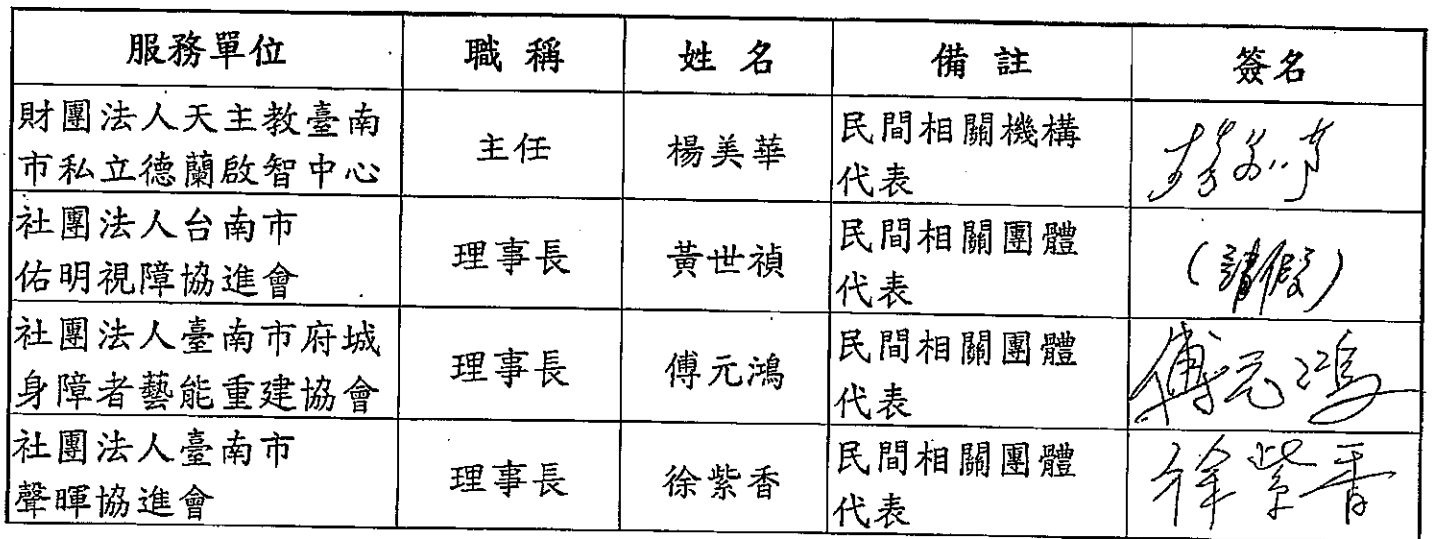 服務單位 職稱 姓名 備註 簽名
財團法人天主教臺南
市私立德蘭啟智中心 主任 楊美華 民間相關機構
代表 楊美華
社團法人台南市
佑明視障協進會 理事長 黃世禎 民間相關團體
代表 (請假)
社團法人臺南市府城
身障者藝能重建協會 理事長 傅元鴻 民間相關團體
代表 傅元鴻
社團法人臺南市
聲暉協進會 理事長 徐紫香 民間相關團體
代表 徐紫香